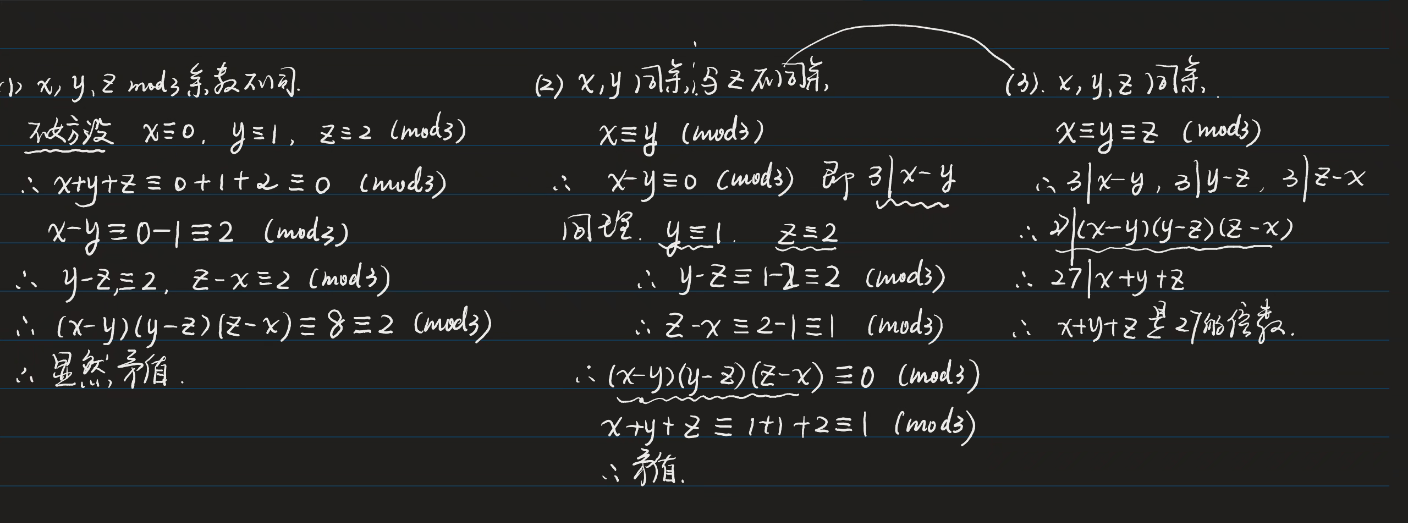 (1) x, y, z mod3 余数不同.
不妨设 x≡0, y≡1, z≡2 (mod3)
∴ x+y+z≡0+1+2≡0 (mod3)
x-y≡0-1≡2 (mod3)
∴ y-z≡2, z-x≡2 (mod3)
∴ (x-y)(y-z)(z-x)≡8≡2 (mod3)
∴ 显然,矛值.
(2) x,y 同余,与z不同余,
x≡y (mod3)
∴ x-y≡0 (mod3) 即 3|x-y
同理. y≡1. z≡2
∴ y-z≡1-2≡2 (mod3)
∴ z-x≡2-1≡1 (mod3)
∴ (x-y)(y-z)(z-x)≡0 (mod3)
x+y+z≡1+1+2≡1 (mod3)
∴ 矛值.
(3). x, y, z 同余,
x≡y≡z (mod3)
∴ 3|x-y, 3|y-z, 3|z-x
∴ 27|(x-y)(y-z)(z-x)
∴ 27|x+y+z
∴ x+y+z是27的倍数.